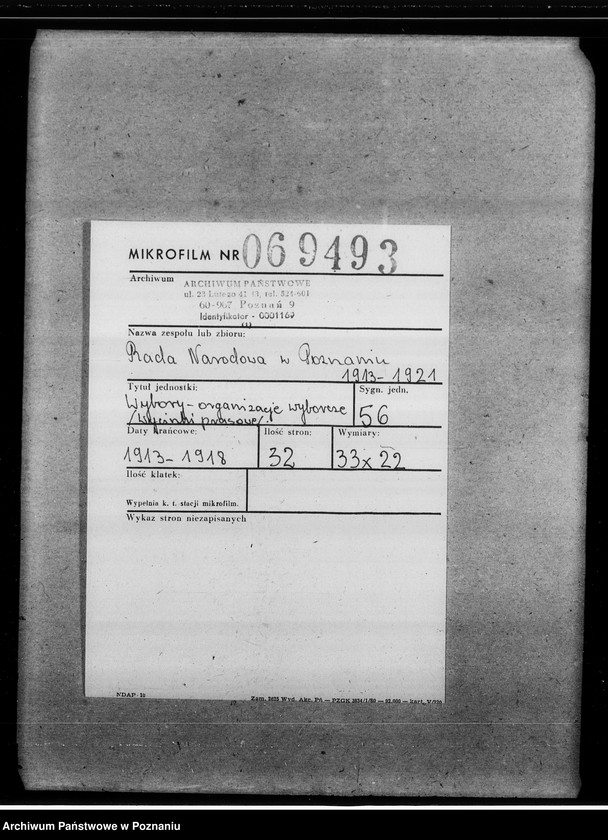 MIKROFILM NR 069493
Archiwum
ARCHIWUM PAŃSTWOWE
ul. 23 Lutego 41 43, tel. 524-601
60-967 Poznań 9
Identyfikator - 0001169
Nazwa zespołu lub zbioru:
Rada Narodowa w Poznaniu
1913-1921
Tytuł jednostki:
Sygn. jedn.
Wybory - organizacje wyborcze
/Wycinki prasowe/.
56
Daty krańcowe:
Ilość stron:
Wymiary:
1913-1918
32
33x22
Ilość klatek:
Wypełnia k. t. stacji mikrofilm.
Wykaz stron niezapisanych
NDAP-
Zam. Wyd. Akc. Pń — PZGK
Archiwum Państwowe w Poznaniu